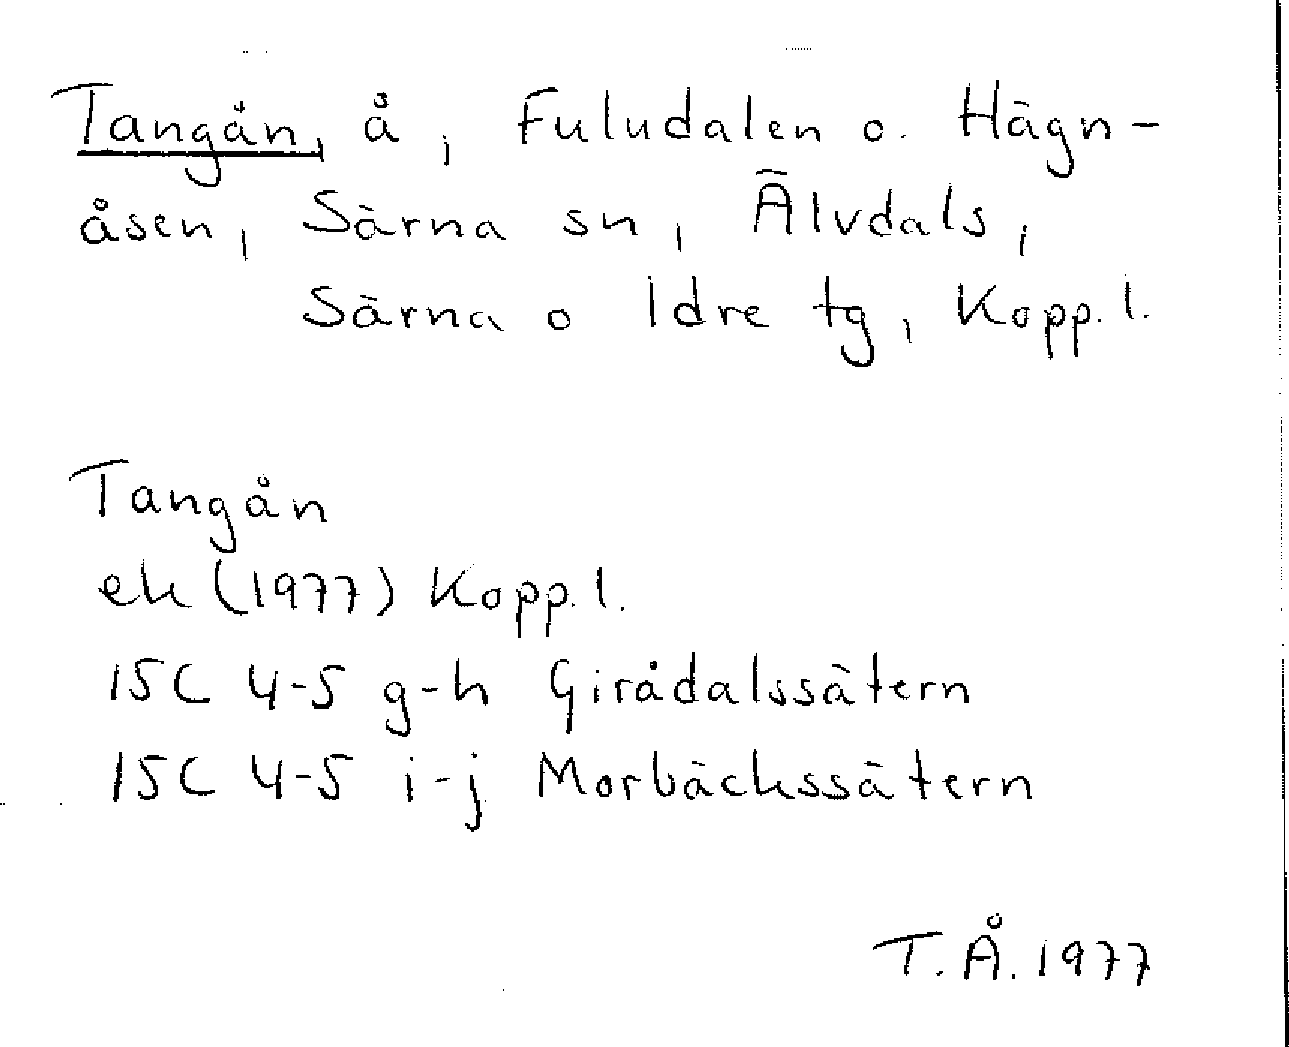 Tangån, å, Fuludalen o. Hägn-
åsen, Särna sn, Älvdals,
Särna o Idre tg, Kopp. l.
Tangån
ek (1977) Kopp. l.
15C 4-5 g-h Girådalssätern
15C 4-5 i-j Morbäckssätern
T.Å. 1977